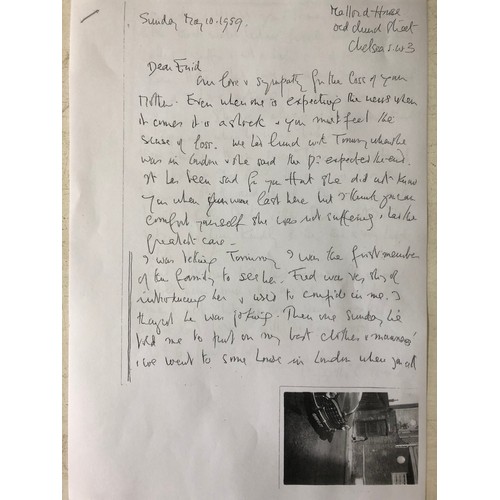 Mallord House
Sunday May 10. 1959.
Old Church Street
Chelsea S.W.3
Dear Enid
Our love & sympathy for the loss of your
Mother. Even when one is expecting the news when
it comes it is a shock & you must feel the
sense of loss. We had lunch with Tommy when she
was in London & she said the Dr expected the end.
It has been sad for you that she did not know
you when you were last here but I think you can
comfort yourself she was not suffering & had the
greatest care -
I was telling Tommy I was the first member
of the family to see her. Fred was very shy of
introducing her & used to confide in me. I
thought he was joking. Then one Sunday he
told me to put on my best clothes & manners
& we went to some house in London where you all